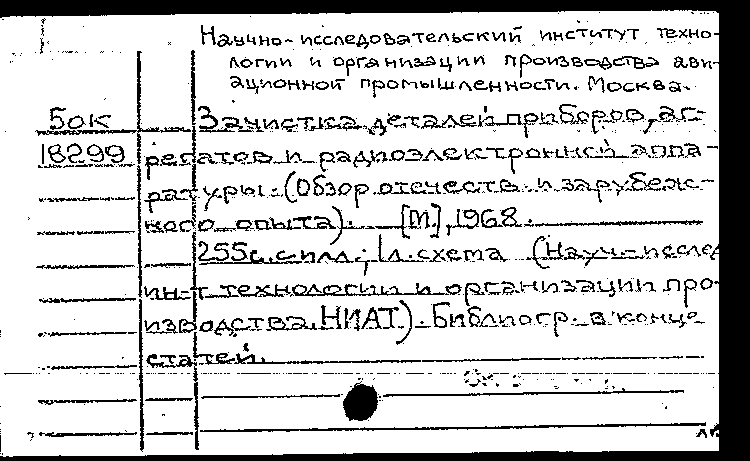 Научно-исследовательский институт техно-
логии и организации производства ави-
ационной промышленности. Москва.
Бок Зачистка деталей приборов, аг-
18299 регатов и радиоэлектронной аппа-
ратуры. (Обзор отечеств. и зарубеж-
ного опыта). [М], 1968.
255с. с илл.; 1л. схема (Науч.-исслед
ин-т технологии и организации про-
изводства. НИАТ). Библиогр. в конце
статей.